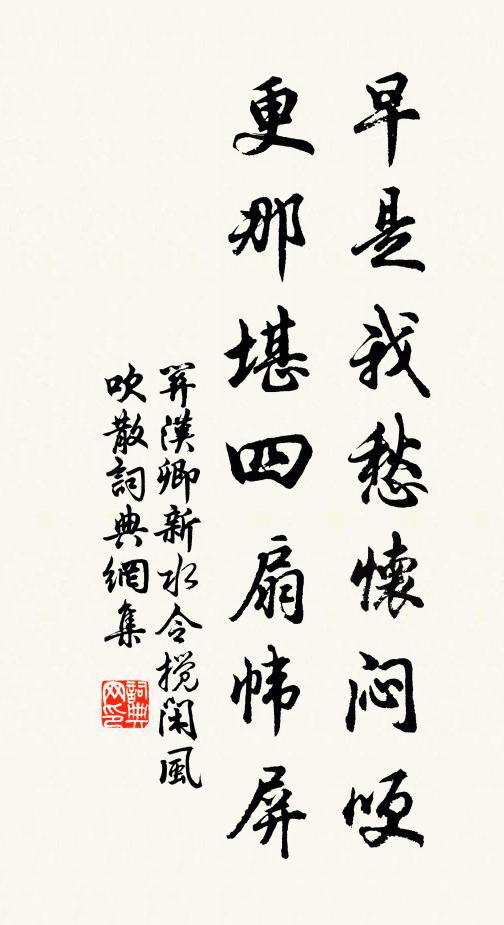 早是我愁懷闷哽
更那堪四扇帏屏
關漢卿新水令攪闲風
吹散詞典網集
詞典网印